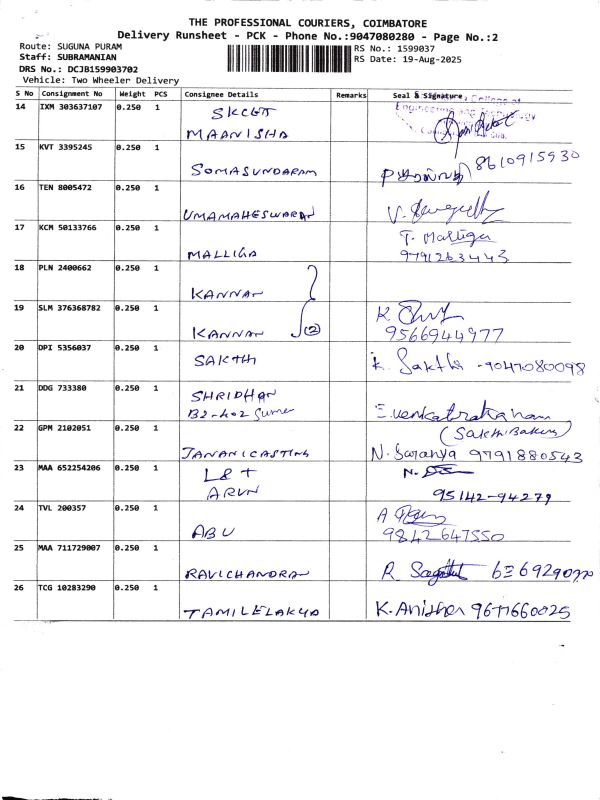 THE PROFESSIONAL COURIERS, COIMBATORE
Delivery Runsheet - PCK - Phone No.:9047080280 - Page No.:2
Route: SUGUNA PURAM
RS No.: 1599037
Staff: SUBRAMANIAN
RS Date: 19-Aug-2025
DRS No.: DCJB159903702
Vehicle: Two Wheeler Delivery
S No Consignment No Weight PCS Consignee Details Remarks Seal & Signature
14 IXM 303637107 0.250 1 SKCET
College of
Engineering and Technology
MAANISHA
15 KVT 3395245 0.250 1
SOMASUNDARAM 8610915930
16 TEN 8005472 0.250 1
UMAMAHESWARAN V.
17 KCM 50133766 0.250 1 T. Malliga
MALLIGA 9791263443
18 PLN 2400662 0.250 1
KANNAN
19 SLM 376368782 0.250 1 K
KANNAN (2) 9566944977
20 DPI 5356037 0.250 1 SAKTHI K. Sakthi - 9047080098
21 DDG 733380 0.250 1 SHRIDHAN
B2-402 E. Venkatrataham
22 GPM 2102051 0.250 1 (Sakthi Bakery)
JANANI CASTING N. Saranya 9791880543
23 MAA 652254206 0.250 1 L & T N.
ARUN 95142-94279
24 TVL 200357 0.250 1 A
ABU 9842647550
25 MAA 711729007 0.250 1
RAVICHANDRAN R
26 TCG 10283290 0.250 1
TAMILELAKYA K. Anisher 9677660025